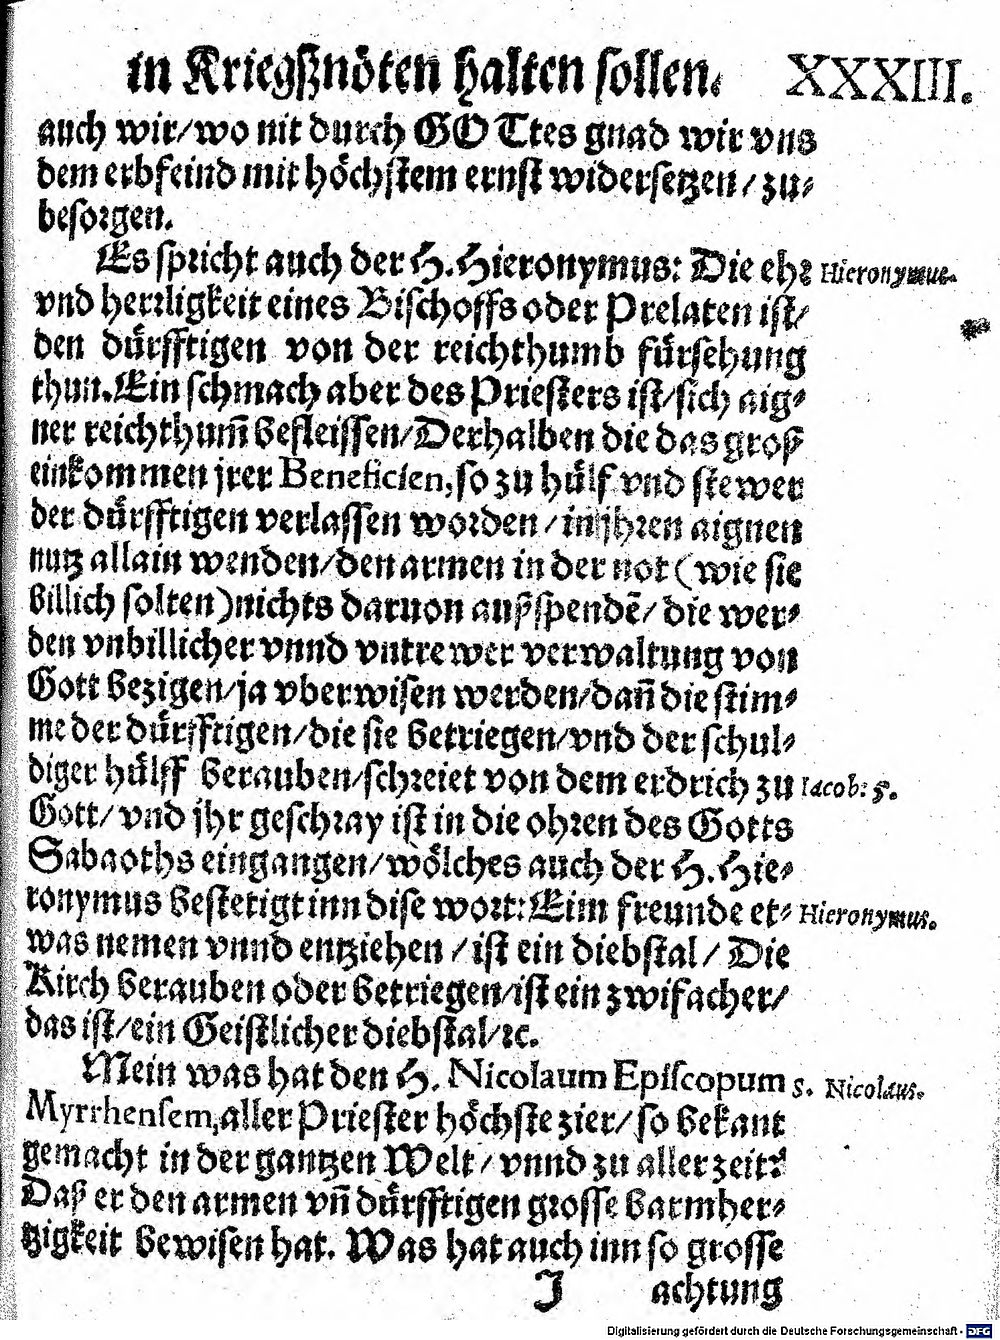 in Kriegßnöten halten sollen. XXXIII.
auch wir/wo nit durch GOTtes gnad wir vns
dem erbfeind mit höchstem ernst widersetzen/zu⸗
besorgen.
Es spricht auch der H. Hieronymus: Die ehr Hieronymus.
vnd herrligkeit eines Bischoffs oder Prelaten ist/
den dürfftigen von der reichthumb fürsehung
thun. Ein schmach aber des Priesters ist/sich aig⸗
ner reichthum̃ befleissen/Derhalben die das groß
einkommen jrer Beneficien, so zu hülf vnd stewer
der dürfftigen verlassen worden/in jhren aignen
nutz allain wenden/den armen in der not (wie sie
billich solten) nichts daruon außspendē/die wer⸗
den vnbillicher vnnd vntrewer verwaltung von
Gott bezigen/ja vberwisen werden/dañ die stim⸗
me der dürfftigen/die sie betriegen/vnd der schul⸗
diger hülff berauben/schreiet von dem erdrich zu Iacob: 5.
Gott/vnd jhr geschray ist in die ohren des Gotts
Sabaoths eingangen/wölches auch der H. Hie⸗
ronymus bestetigt inn dise wort: Eim freunde et⸗ Hieronymus.
was nemen vnnd entziehen/ist ein diebstal/Die
Kirch berauben oder betriegen/ist ein zwifacher/
das ist/ein Geistlicher diebstal/ꝛc.
Mein was hat den H. Nicolaum Episcopum S. Nicolaus.
Myrrhensem, aller Priester höchste zier/so bekant
gemacht in der gantzen Welt/vnnd zu aller zeit?
Daß er den armen vñ dürfftigen grosse barmher⸗
tzigkeit bewisen hat. Was hat auch inn so grosse
J achtung
Digitalisierung gefördert durch die Deutsche Forschungsgemeinschaft - DFG